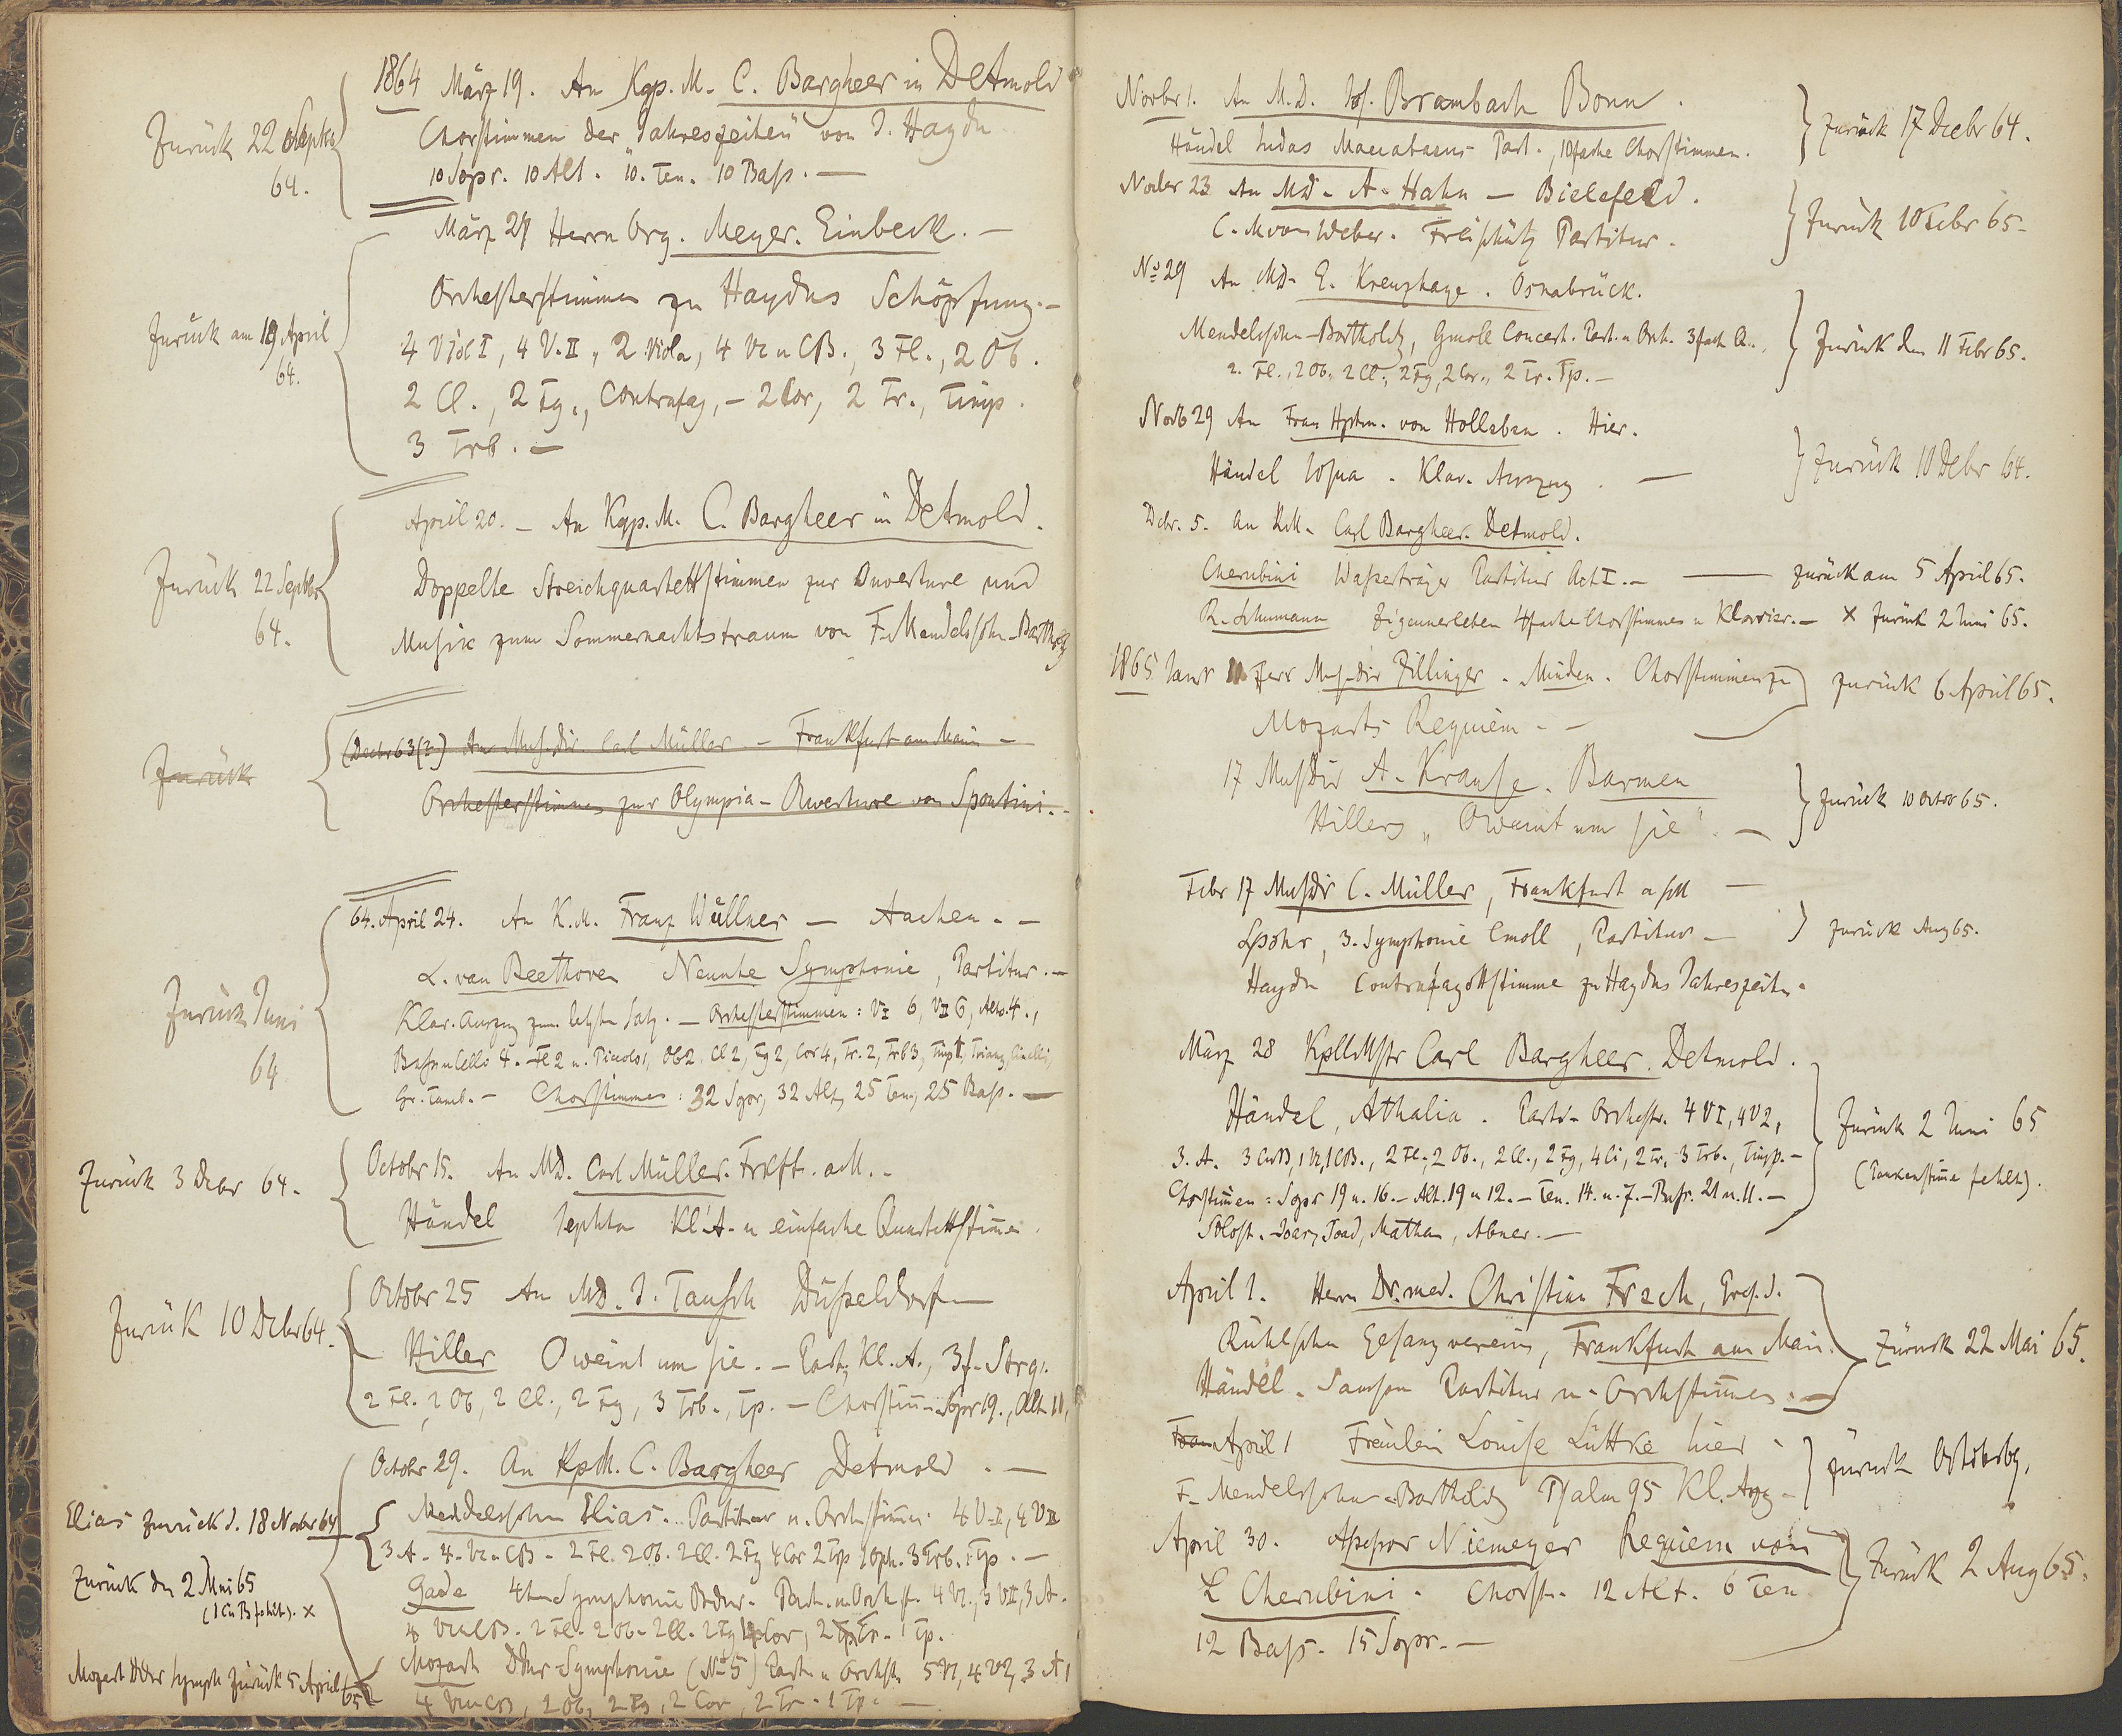 1864 März 19. An Kap. M. C. Bargheer in Detmold
Chorstimmen der "Jahreszeiten" von J. Haydn.
10 Sopr. 10 Alt. 10. Ten. 10 Bass. —
Zurück 22 Septbr
64.
März 28 Herrn Org. Meyer. Einbeck. —
Orchesterstimmen zu Haydns Schöpfung. —
4 Viol I, 4 V. II, 2 Viola, 4 Vc u CB., 3 Fl., 2 Ob.
2 Cl., 2 Fg., Contrafag, — 2 Cor, 2 Tr., Timp.
3 Trb. —
Zurück am 19 April
64.
April 20. — An Kap. M. C. Bargheer in Detmold.
Doppelte Streichquartettstimmen zur Ouverture und
Musik zum Sommernachtstraum von F. Mendelssohn-Bartholdy
Zurück 22 Septbr
64.
(Decbr 63 (?)) An Mus. dir. Carl Müller — Frankfurt am Main —
Orchesterstimmen zur Olympia-Ouverture von Spontini. —
Zurück
64. April 24. An K. M. Franz Wüllner — Aachen. —
L. van Beethoven Neunte Symphonie, Partitur. —
Klav. Auszug zum letzten Satz. — Orchesterstimmen: VI 6, VII 6, Alto. 4.,
Bassu Cello 4. — Fl 2 u. Piccolo 1, Ob 2, Cl 2, Fg 2, Cor 4, Tr. 2, Trb 3, Timp 1, Triang, Cinelli,
Gr. Tamb. — Chorstimmen: 32 Sopr, 32 Alt, 25 Ten, 25 Bass. —
Zurück Juni
64
Octobr 15. An MD. Carl Müller. Frkft. a M. —
Händel Jephta Kl. A. u einfache Quartettstimmen.
Zurück 3 Dcbr 64.
Octobr 25 An MD. J. Tausch Düsseldorf —
Hiller O weint um sie. — Part, Kl. A., 3f. Strq.
2 Fl., 2 Ob, 2 Cl., 2 Fg, 3 Trb., Tp. — Chorstimm. Sopr 19., Alt 11,
Zurück 10 Dcbr 64.
Octobr 29. An KpM. C. Bargheer Detmold. —
Mendelssohn Elias. Partitur u. Orchstimen 4 V I, 4 V II
3 A. 4. Vc u CB — 2 Fl. 2 Ob. 2 Cl. 2 Fg 4 Cor 2 Trp 1 Oph. 3 Trb. 1 Tp. —
Elias zurück d. 18 Novbr 64
Gade 4te Symphonie Bdur. Part. u. Orchst. 4 V I., 3 V II, 3 A.
4 Vc u CB. 2 Fl. 2 Ob. 2 Cl. 2 Fg 4 Cor, 2 Tr. 1 Tp.
Zurück den 2 Mai 65
(1 Cu B fehlt). x
Mozart Ddur Symphonie (No 5) Part. u Orchst. 5 V I, 4 V 2, 3 A,
4 Vc u CB, 2 Ob, 2 Fg, 2 Cor, 2 Tr. 1 Tp. —
Mozart Ddur Symph zurück 5 April
65
Novbr 1. An M.D. Jos. Brambach Bonn.
Händel Judas Maccabaeus Part., 10fache Chorstimmen.
Zurück 17 Decbr 64.
Novbr 23 An MD. A. Hahn — Bielefeld.
C. M von Weber. Freischütz Partitur.
Zurück 10 Febr 65.
No 29 An MD. E. Kreuzhage. Osnabrück.
Mendelssohn-Bartholdy, Gmoll Concert. Part. u Orch. 3fach Q..
2. Fl., 2 Ob., 2 Cl., 2 Fg, 2 Cor., 2 Tr. Tp. —
Zurück den 11 Febr 65.
Novb 29 An Frau Hptm. von Holleben. Hier.
Händel Josua. Klav. Auszug. —
Zurück 10 Dcbr 64.
Dcbr. 5. An KM. Carl Bargheer. Detmold.
Cherubini Wasserträger Partitur Act I. — — zurück am 5 April 65.
R. Schumann Zigeunerleben 4fache Chorstimmen u Klavier. — x Zurück 2 Juni 65.
1865 Janr 11 Herr Mus. dir Zillinger. Minden. Chorstimmen zu
Mozarts Requiem. —
zurück 6 April 65.
17 MusDir A. Krause. Barmen
Hillers „O weint um sie". —
zurück 10 Octob 65.
Febr 17 Musdir C. Müller, Frankfurt a/M —
Spohr, 3. Symphonie Cmoll, Partitur —
Haydn Contrafagottstimme zu Haydns Jahreszeiten.
zurück Aug 65.
März 28 KpllMstr Carl Bargheer. Detmold.
Händel, Athalia. Part. Orchestr. 4 V I, 4 V 2,
3. A. 3 CuB, 1 Vc, 1 CB., 2 Fl., 2 Ob., 2 Cl., 2 Fg, 4 Ci, 2 Tr, 3 Trb., Timp. —
Chorstimmen: Sopr 19 u. 16. — Alt. 19 u 12. — Ten. 14. u. 7. — Bass. 21 u. 11. —
Solost. Joas, Joad, Mathan, Abner. —
Zurück 2 Juni 65
(Paukenstimme fehlt).
April 1. Herrn Dr. med. Christian Fresh, Präs. d.
Rühlschen Gesangverein, Frankfurt am Main.
Händel. Samson Partitur u. Orchstimmen. —
Zurück 22 Mai 65.
Frau April 1 Fräulein Louise Lüttke hier.
F. Mendelssohn-Bartholdy Psalm 95 Kl. Ausz. —
zurück Octob 69.
April 30. Assessor Niemeyer Requiem von
L Cherubini. Chorst. 12 Alt. 6 Ten
12 Bass. 15 Sopr. —
Zurück 2 Aug 65.